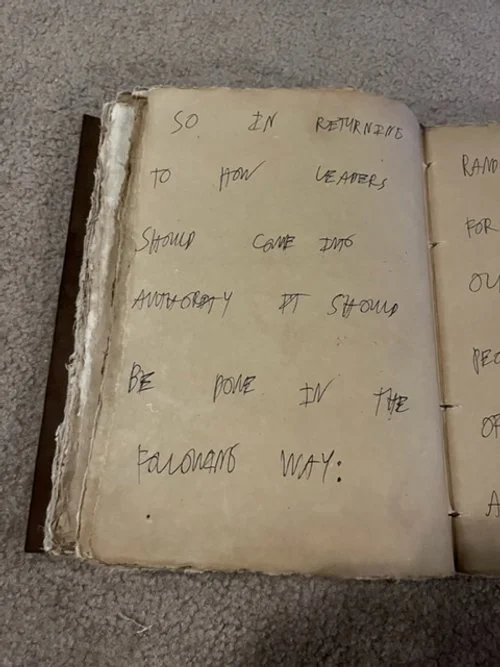 SO IN RETURNING
TO HOW LEADERS
SHOULD COME INTO
AUTHORITY IT SHOULD
BE DONE IN THE
FOLLOWING WAY:
RAND
FOR
OU
PEO
OF
A